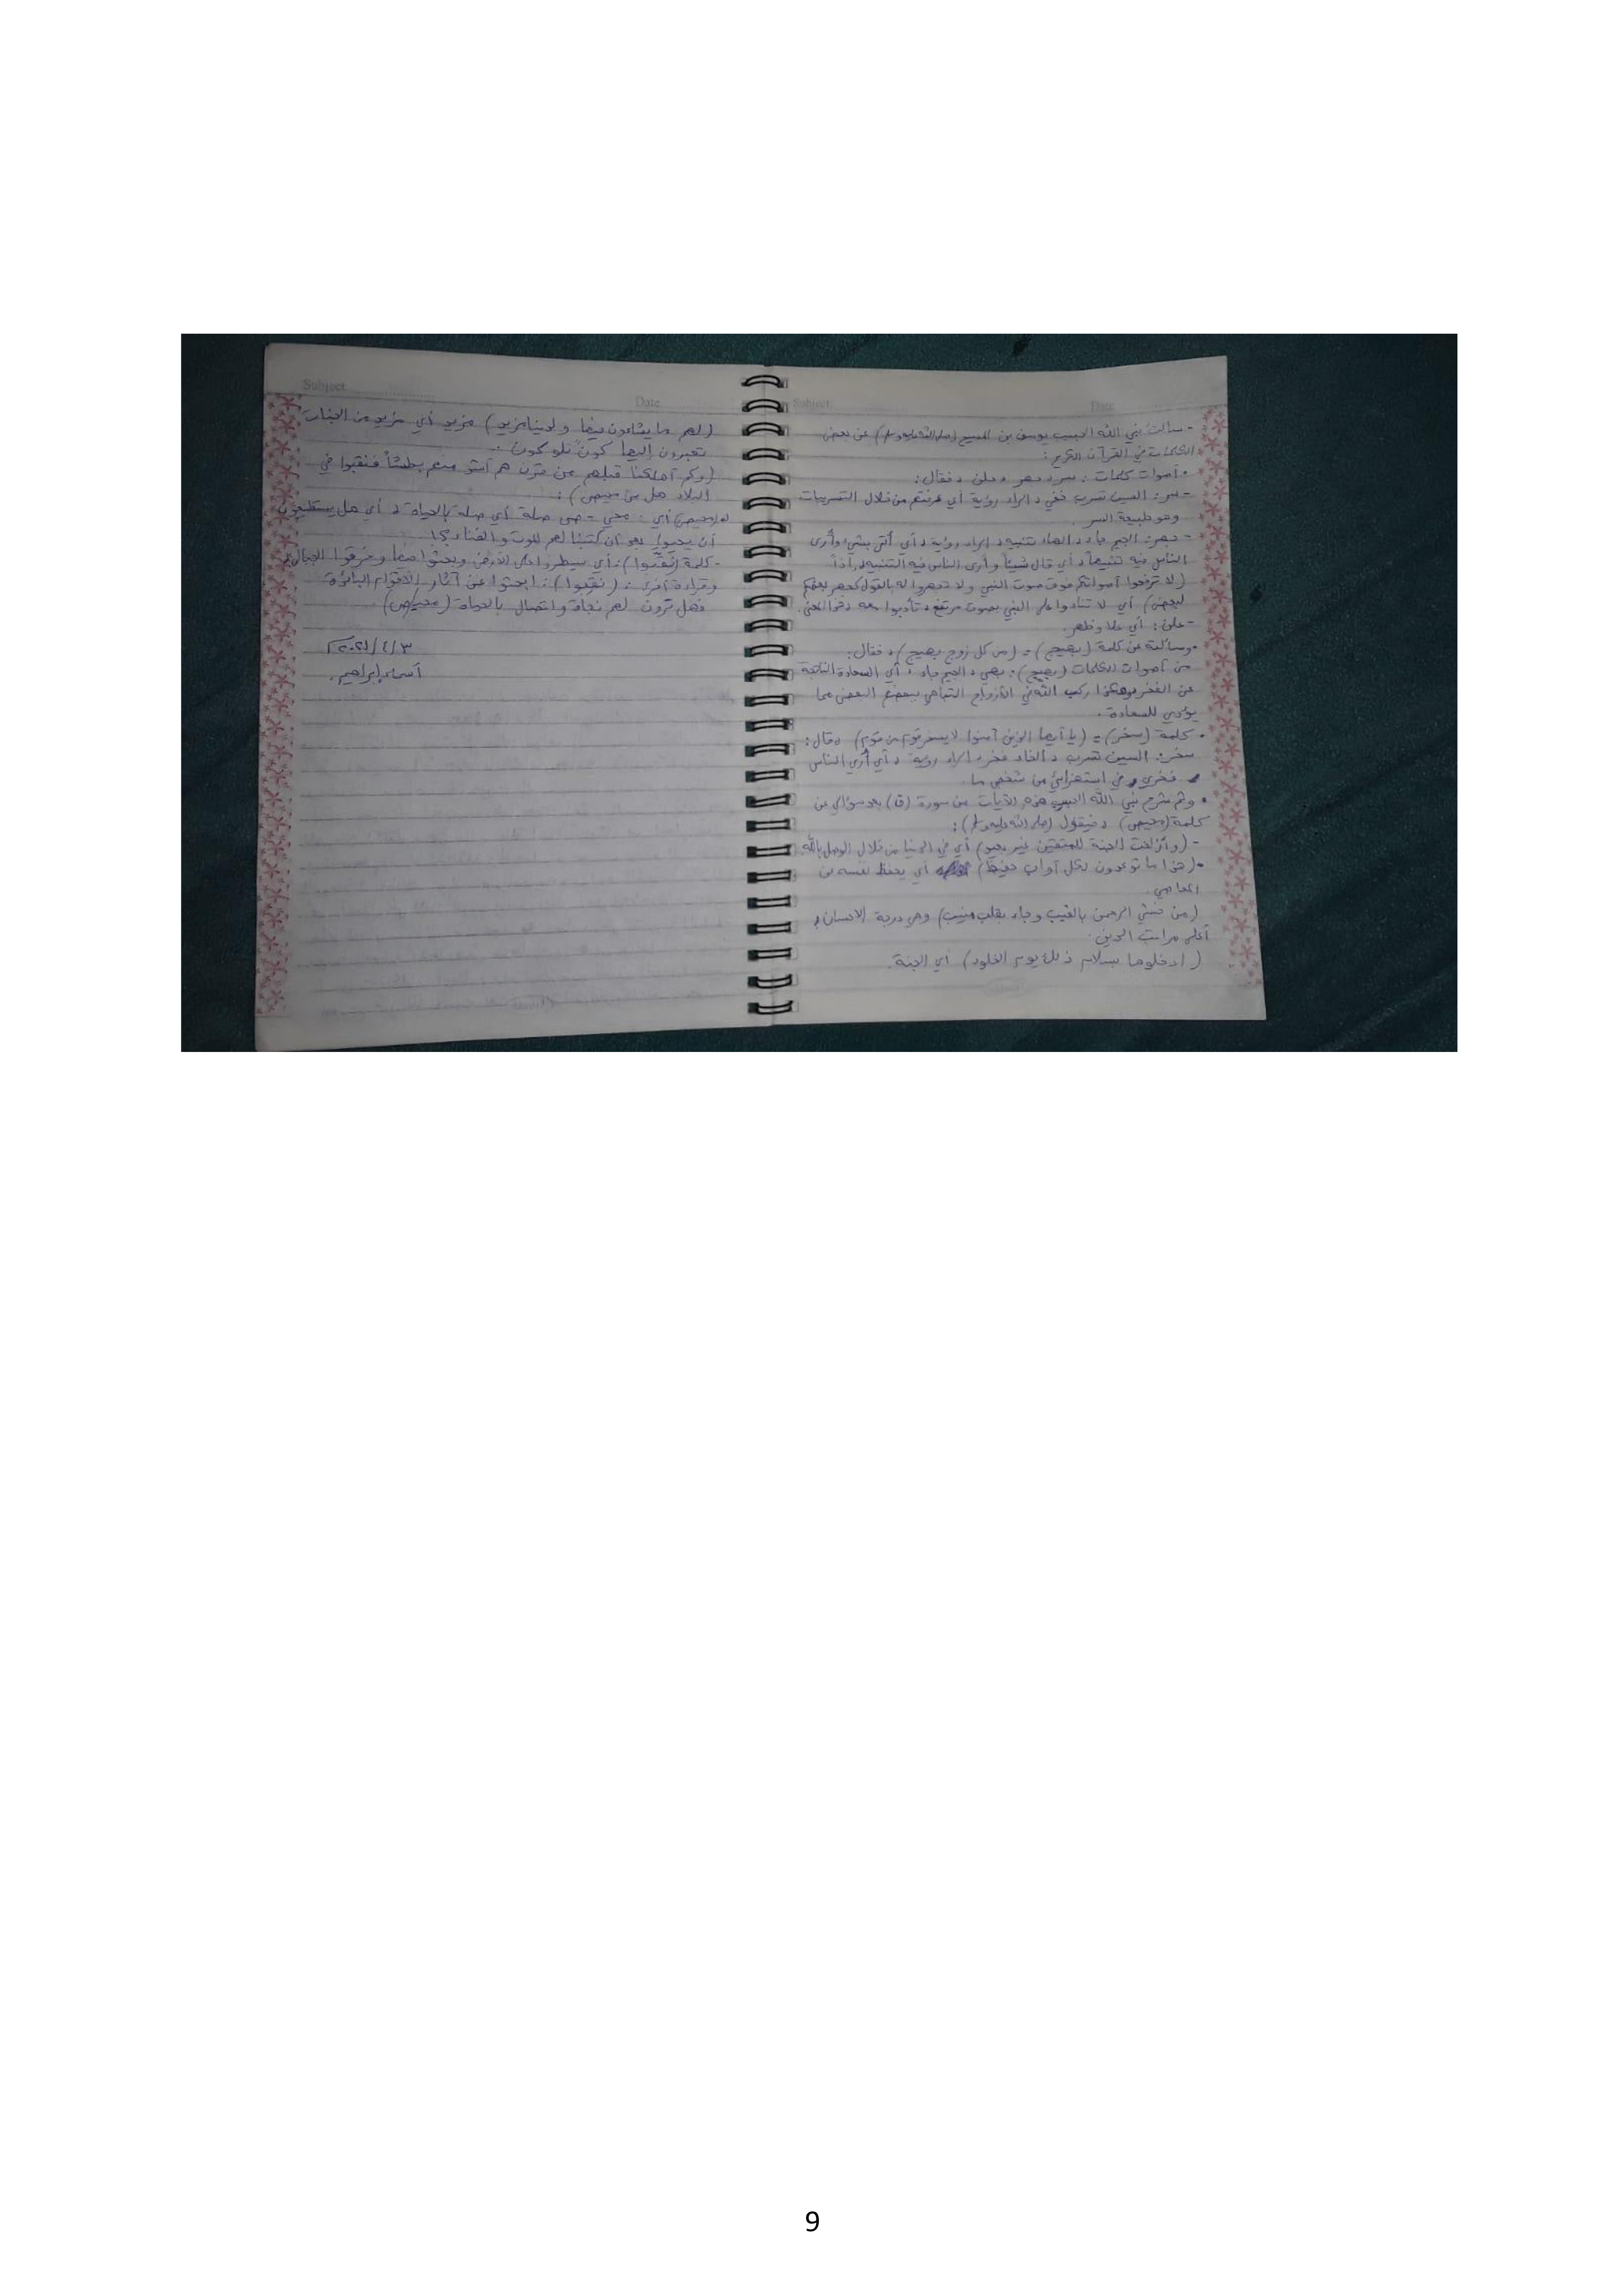 Subject
Date
- سألت نبي الله الحبيب يوسف بن المسيح (صلى الله عليه وسلم) عن بعض
الكلمات في القرآن الكريم :
• أصوات كلمات : سر، جهر، علن ، فقال :
- سر : السين تسرب خفي ، الراء رؤية أي عرفتم من خلال التسريبات
وهو طبيعة السر .
- جهر : الجيم جاء ، الهاء تنبيه ، الراء رؤية ، أي أتى بشيء وأرى
الناس فيه تنبيهاً ، أي قال شيئاً وأرى الناس فيه التنبيه ، إذاً
(لا ترفعوا أصواتكم فوق صوت النبي ولا تجهروا له بالقول كجهر بعضكم
لبعض) أي لا تنادوا على النبي بصوت مرتفع ، تأدبوا معه
- علن : أي علا وظهر .
• وسألته عن كلمة (بهيج) = (من كل زوج بهيج) ، فقال :
من أصوات الكلمات (بهيج) : بهي ، الجيم جاء ، أي السعادة الناتجة
عن الفخر وهكذا ركب الله في الأزواج التباهي ببعضهم البعض مما
يؤدي للسعادة .
• كلمة (سخر) = (يا أيها الذين آمنوا لا يسخر قوم من قوم) ، قال :
سخر : السين تسرب ، الخاء فخر ، الراء رؤية ، أي أرى الناس
فخري في استهزائي من شخص ما .
• وثم شرح نبي الله الحبيب هذه الآيات من سورة (ق) بعد سؤالي عن
كلمة (محيص) ، فيقول (صلى الله عليه وسلم) :
- (وأزلفت الجنة للمتقين غير بعيد) أي في الدنيا من خلال الوصل بالله
• (هذا ما توعدون لكل أواب حفيظ) أي يحفظ نفسه من
المعاصي .
(من خشي الرحمن بالغيب وجاء بقلب منيب) وهي درجة الإحسان ،
أعلى مراتب الدين .
(ادخلوها بسلام ذلك يوم الخلود) أي الجنة .
Subject
Date
(لهم ما يشاءون فيها ولدينا مزيد) مزيد أي مزيد من الجنات
تعبرون إليها كونٌ تلو كون .
(وكم أهلكنا قبلهم من قرن هم أشد منهم بطشاً فنقبوا في
البلاد هل من محيص) :
(محيص) أي : محي - ص صلة أي صلة بالحياة ، أي هل يستطيعون
أن يحيوا بعد أن كتبنا لهم الموت والفناء ؟!
- كلمة (نَقَّبوا) : أي سيطروا على الأرض وبحثوا فيها وخرقوا الجبال
وقراءة أخرى : (نقِّبوا) : ابحثوا عن آثار الأقوام البائدة
فهل ترون لهم نجاة واتصال بالحياة (محيص) .
٣/٤/٢٠٢١
أسماء إبراهيم .
9